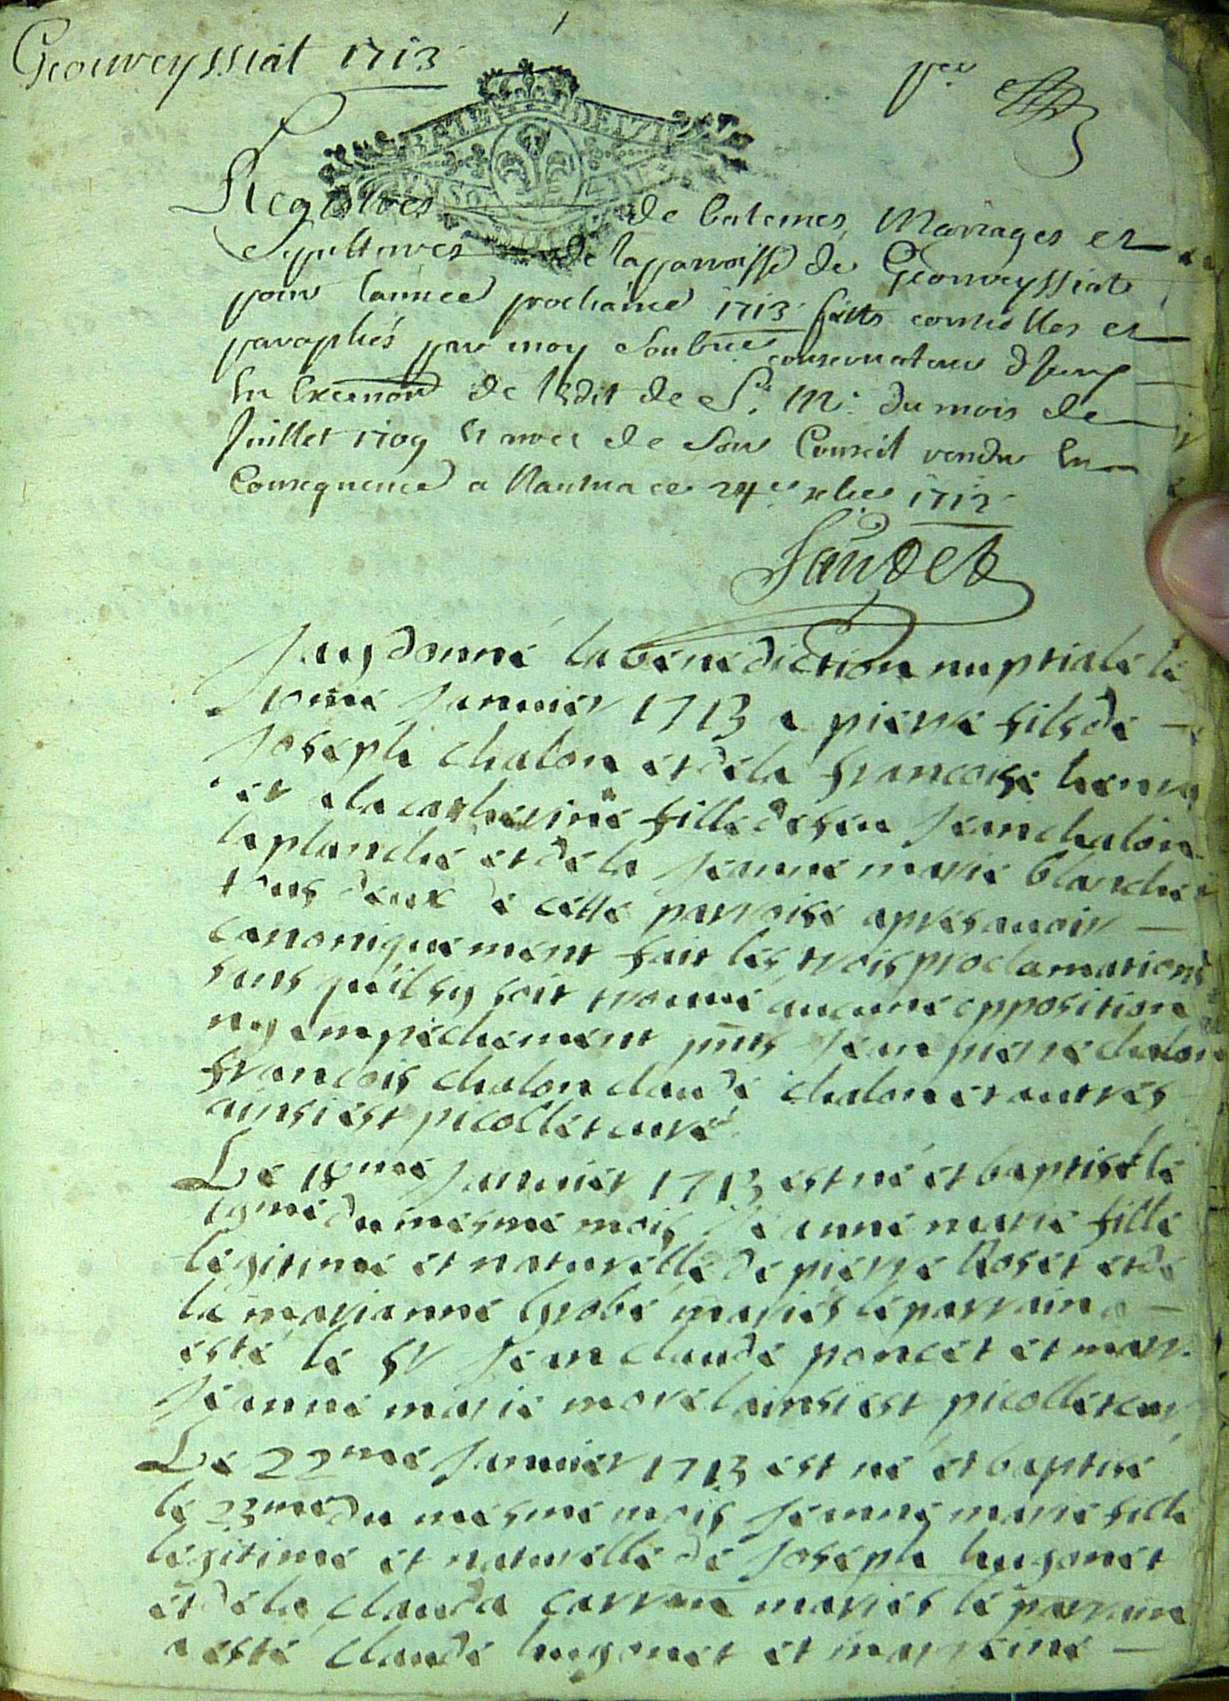 Geouveyssiat 1713
Registres de batemes, Mariages et
sepultures de la parroisse de Geouveyssiat
pour lannee prochaine 1713 faits controlles et
paraphés par moy soubné conservateur
En Execution de l'Edit de S. M. du mois de
Juillet 1709 Et arret de son Conseil rendu En
Consequence a Nantua ce 24e xbre 1712
Jay donné la benediction nuptiale le
10me Janvier 1713 a pierre fils de
Joseph chalon et de la francoise
et a la catherine fille de feu Jean chalon
laplanche et de la Jeanne marie blanche
tous deux de cette parroise apres avoir
canoniquement fait les trois proclamations
sans qu'il sy soit trouué aucune opposition
ny empechement pnts Jean pierre chalon
francois chalon claude chalon et autres
ainsi est picollet curé
Le 18me Janvier 1713 est né et baptisé le
19me du mesme mois Jeanne marie fille
legitime et naturelle de pierre Roset et de
la marianne grobé mariés le parrain a
esté le sr Jean claude poncet et marr.
Jeanne marie morel ainsi est picollet cur
Le 22me Janvier 1713 est né et baptisé
le 23me du mesme mois Jeanne marie fille
legitime et naturelle de Joseph hugonet
et de la clauda carron mariés le parrain
a esté claude hugonet et marreine